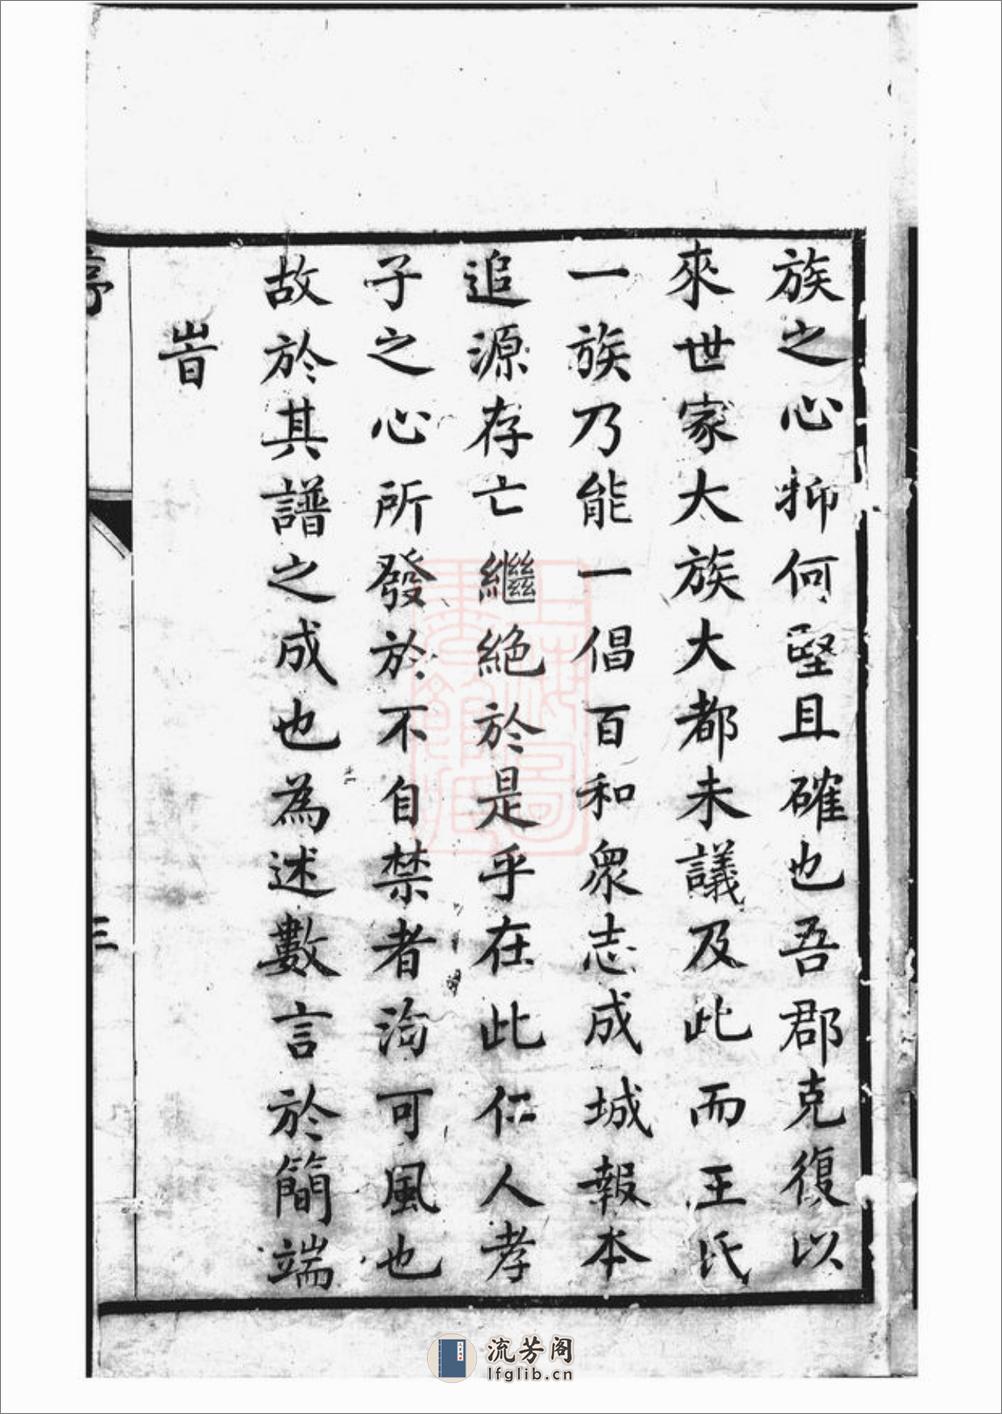 族之心抑何堅且確也吾郡克復以
來世家大族大都未議及此而王氏
一族乃能一倡百和衆志成城報本
追源存亡繼絕於是乎在此仁人孝
子之心所發於不自禁者洵可風也
故於其譜之成也為述數言於簡端
旹
三
流芳阁
lfglib.cn